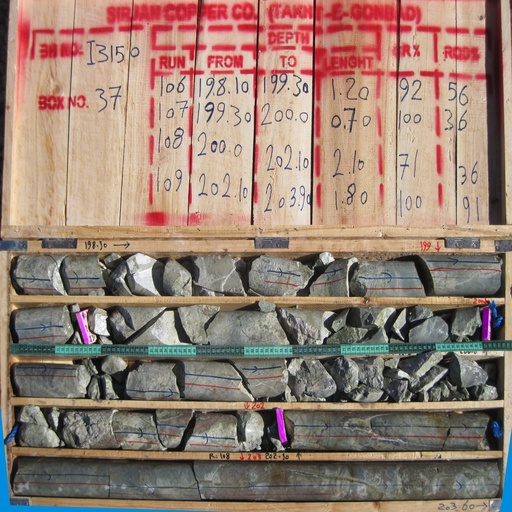 SIRJAN COPPER CO. (TAKHT-E-GONBAD)
BH NO: I3150
DEPTH
RUN FROM TO LENGHT CR% RQD%
BOX NO. 37
106 198.10 199.30 1.20 92 56
107 199.30 200.0 0.70 100 36
108 200.0 202.10 2.10 71 36
109 202.10 203.90 1.80 100 91
198.10 →
199
↓ 202
R: 108 ↓ 203 202.10 ↑
203.60 →